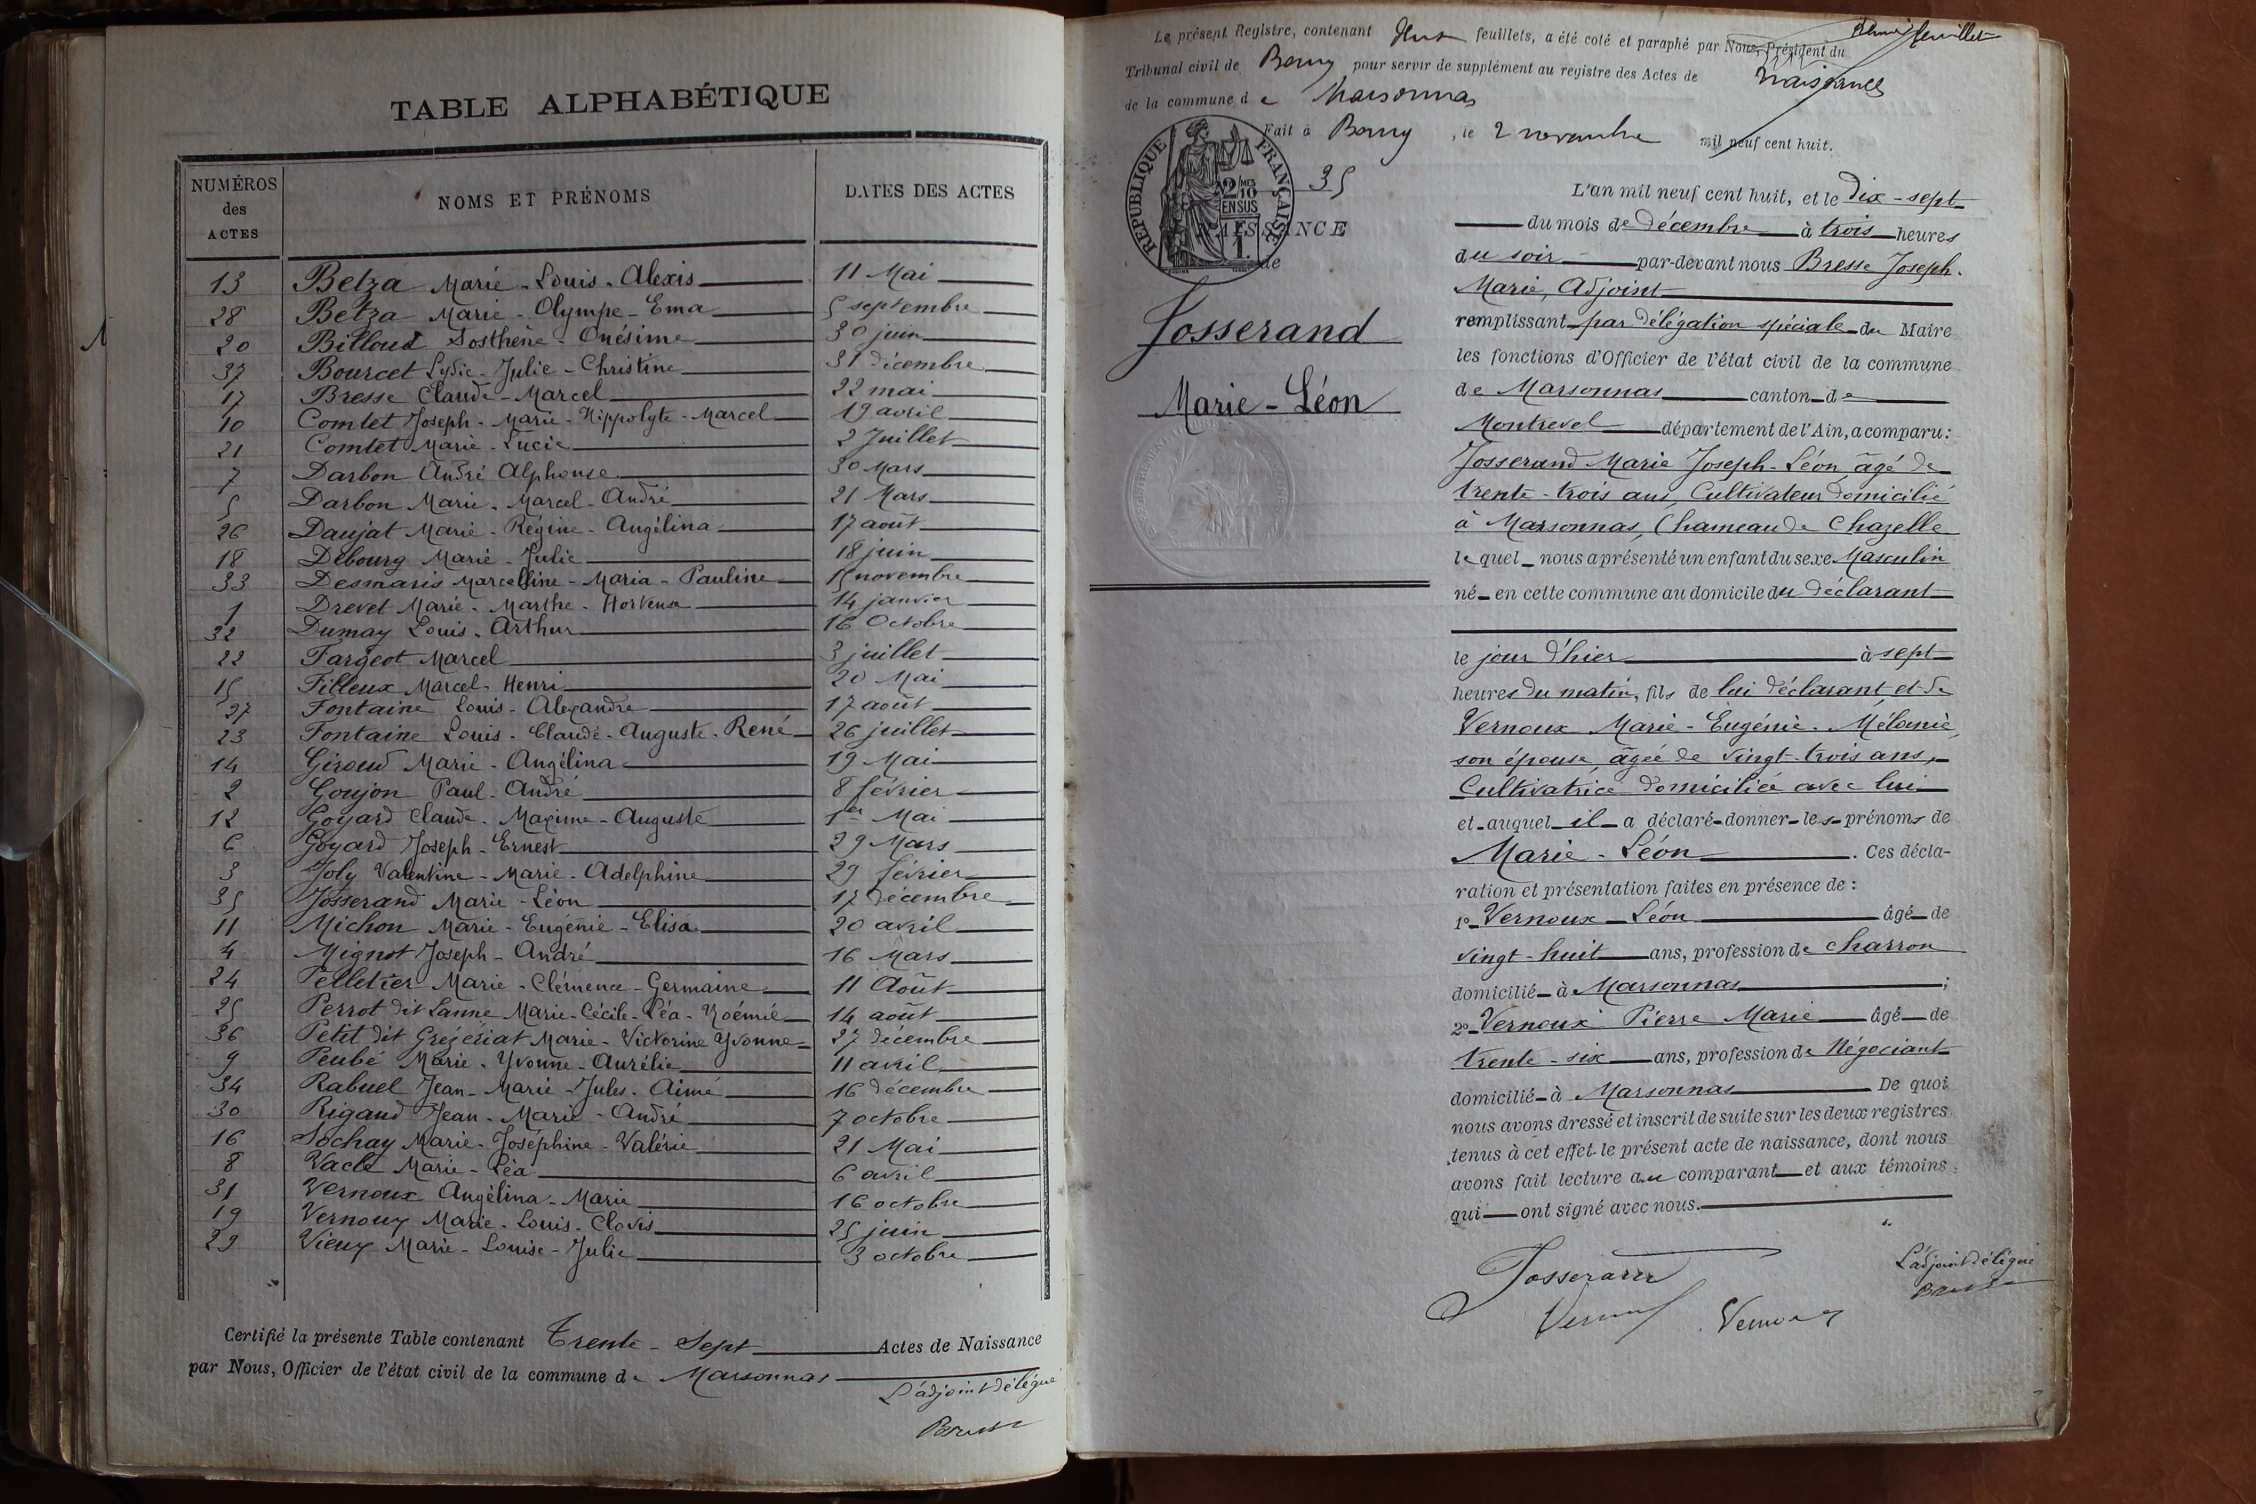 TABLE ALPHABÉTIQUE
NUMÉROS des ACTES NOMS ET PRÉNOMS DATES DES ACTES
13 Betza Marie-Louis-Alexis 11 Mai
28 Betza Marie-Olympe-Ema 5 septembre
20 Billoud Sosthène-Onésime 30 juin
37 Bourcet Lydie-Julie-Christine 31 décembre
17 Bresse Claude-Marcel 22 mai
10 Comtet Joseph-Marie-Hippolyte-Marcel 19 avril
21 Comtet Marie-Lucie 2 Juillet
7 Darbon André Alphonse 30 Mars
5 Darbon Marie-Marcel-André 21 Mars
26 Daujat Marie-Régine-Angélina 17 août
18 Debourg Marie-Julie 18 juin
33 Desmaris Marcelline-Maria-Pauline 15 novembre
1 Drevet Marie-Marthe-Hortense 14 janvier
32 Dumay Louis-Arthur 16 Octobre
22 Fargeot Marcel 3 juillet
15 Filleux Marcel-Henri 20 Mai
27 Fontaine Louis-Alexandre 17 août
23 Fontaine Louis-Claude-Auguste-René 26 juillet
14 Giroud Marie-Angélina 19 Mai
2 Goujon Paul-André 8 février
12 Goyard Claude-Maxime-Auguste 1er Mai
6 Goyard Joseph-Ernest 29 Mars
3 Joly Valentine-Marie-Adelphine 29 février
35 Josserand Marie-Léon 17 décembre
11 Michon Marie-Eugénie-Elisa 20 avril
4 Mignot Joseph-André 16 Mars
24 Pelletier Marie-Clémence-Germaine 11 Août
25 Perrot dit Lanne Marie-Cécile-Léa-Noémie 14 août
36 Petit dit Grézériat Marie-Victorine Yvonne 27 décembre
9 Peubé Marie-Yvonne-Aurélie 11 avril
34 Rabuel Jean-Marie-Jules-Aimé 16 décembre
30 Rigaud Jean-Marie-André 7 octobre
16 Sochay Marie-Joséphine-Valérie 21 Mai
8 Vacle Marie-Léa 6 avril
31 Vernoux Angélina-Marie 16 octobre
19 Vernoux Marie-Louis-Clovis 25 juin
29 Vieux Marie-Louise-Julie 3 octobre
Certifié la présente Table contenant Trente-Sept Actes de Naissance
par Nous, Officier de l'état civil de la commune de Marsonnas
L'adjoint délégué
Bresse
Le présent Registre, contenant feuillets, a été coté et paraphé par Nous, Président du
Tribunal civil de Bourg pour servir de supplément au registre des Actes de Naissances
de la commune de Marsonnas
Fait à Bourg, le 2 novembre mil neuf cent huit.
RÉPUBLIQUE FRANÇAISE
2/10 MES
EN SUS
35
NAISSANCE
de
Josserand
Marie-Léon
L'an mil neuf cent huit, et le dix-sept
du mois de décembre à trois heures
du soir par-devant nous Bresse Joseph-
Marie, Adjoint
remplissant par délégation spéciale du Maire
les fonctions d'Officier de l'état civil de la commune
de Marsonnas canton de
Montrevel département de l'Ain, a comparu:
Josserand Marie Joseph-Léon, âgé de
trente-trois ans, Cultivateur domicilié
à Marsonnas, (hameau de Chazelle
lequel nous a présenté un enfant du sexe Masculin
né en cette commune au domicile du déclarant
le jour d'hier à sept
heures du matin, fils de lui déclarant, et de
Vernoux Marie-Eugénie-Mélanie,
son épouse, âgée de vingt-trois ans,
Cultivatrice domiciliée avec lui
et auquel il a déclaré donner les prénoms de
Marie-Léon. Ces décla-
ration et présentation faites en présence de :
1° Vernoux Léon âgé de
vingt-huit ans, profession de charron
domicilié à Marsonnas ;
2° Vernoux Pierre Marie âgé de
trente-six ans, profession de Négociant
domicilié à Marsonnas De quoi
nous avons dressé et inscrit de suite sur les deux registres
tenus à cet effet le présent acte de naissance, dont nous
avons fait lecture au comparant et aux témoins
qui ont signé avec nous.
L'adjoint délégué
Josserand
Bresse
Vernoux Vernoux